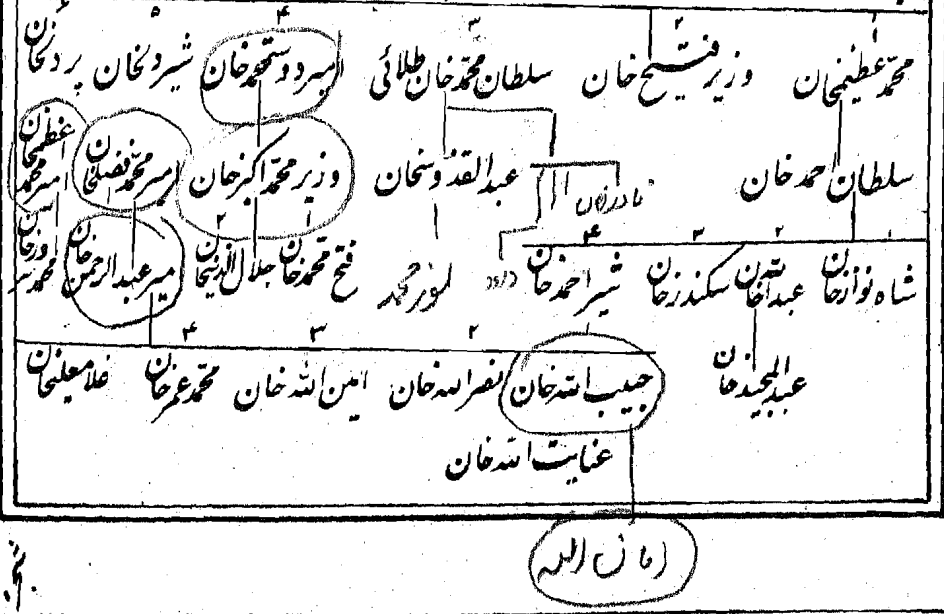 ۱ ۲ ۳ ۴ ۵ ۶
محمد عظیمخان وزیر فتح خان سلطان محمد خان طلائی امیر دوستمحمد خان شیردلخان پردلخان
سلطان احمد خان عبدالقدوسخان وزیر محمد اکبر خان امیر محمد افضلخان امیر محمد اعظیمخان
نادرخان
۱ ۲ ۳ ۴ ۱ ۲
شاه نوازخان عبدالله خان سکندرخان شیر احمد خان داود نور محمد فتح محمد خان جلال الدینخان امیر عبدالرحمن خان محمد سرورخان
عبدالمجید خان
۲ ۳ ۴
حبیب الله خان نصر الله خان امین الله خان محمد عمر خان غلامعلیخان
عنایت الله خان
امان الله